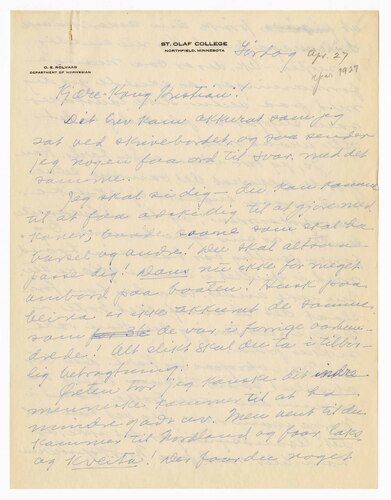 ST. OLAF COLLEGE
NORTHFIELD, MINNESOTA
O. E. ROLVAAG
DEPARTMENT OF NORWEGIAN
Tirsdag Apr. 27
Kjære Kong Kristian!
Dit brev kom akkurat som jeg
sat ved skrivebordet, og saa sender
jeg nogen faa ord til svar med det
samme.
Jeg skal si dig — du kan komme
til at faa at gjøre med
koner, baade saane som skal ha
barsel og andre! Du skal altsaa
passe dig! Dans nu ikke for meget
ombord paa baaten! Husk paa
beina er ikke akkurat de samme
som de var i forrige aarhun-
drede! Alt slikt skal du ta i tilbør-
lig betragtning.
Jeg kanske dit indre
menneske kommer til at ha
mindre godt av. Men vent til du
kommer til Nordland og faar laks
og kveita! Der faar du noget